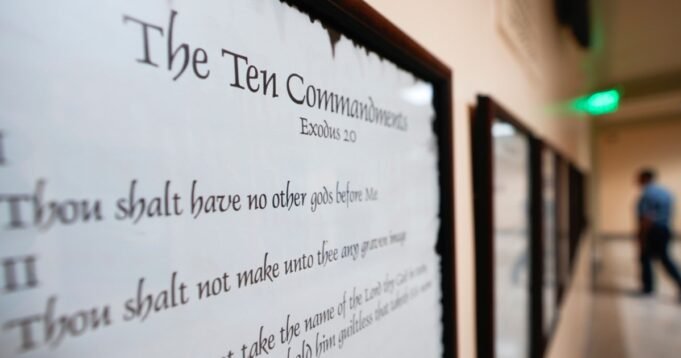 The Ten Commandments
Exodus 20
I
Thou shalt have no other gods before Me
II
Thou shalt not make unto thee any graven image
take the name of the Lord thy God in vain
hold him guiltless that taketh His name